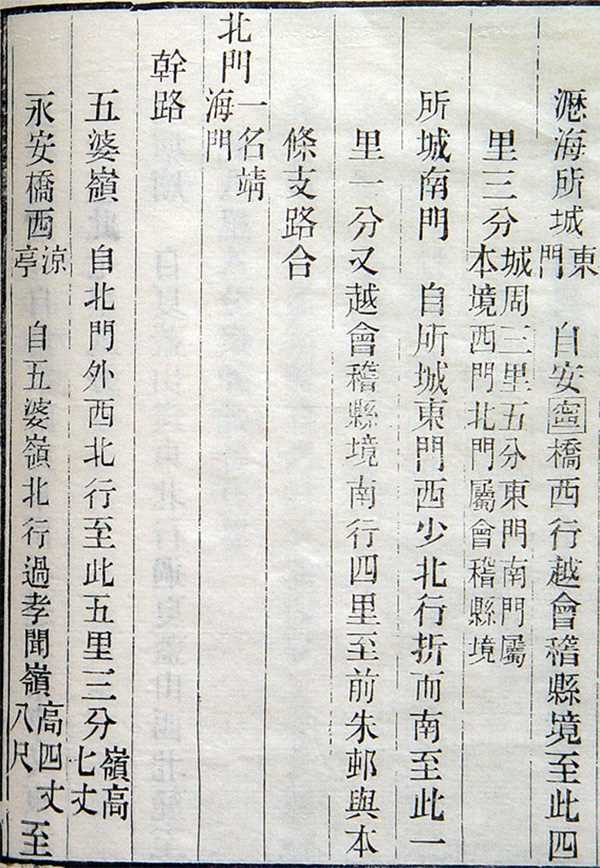 瀝海所城東門　自安寍橋西行越會稽縣境至此四
里三分城周三里五分東門南門屬本境西門北門屬會稽縣境
所城南門　自所城東門西少北行折而南至此一
里一分又越會稽縣境南行四里至前朱邨與本
條支路合
北門一名靖海門
幹路
五婆嶺　自北門外西北行至此五里三分嶺高七丈
永安橋西涼亭　自五婆嶺北行過孝聞嶺高四丈八尺至